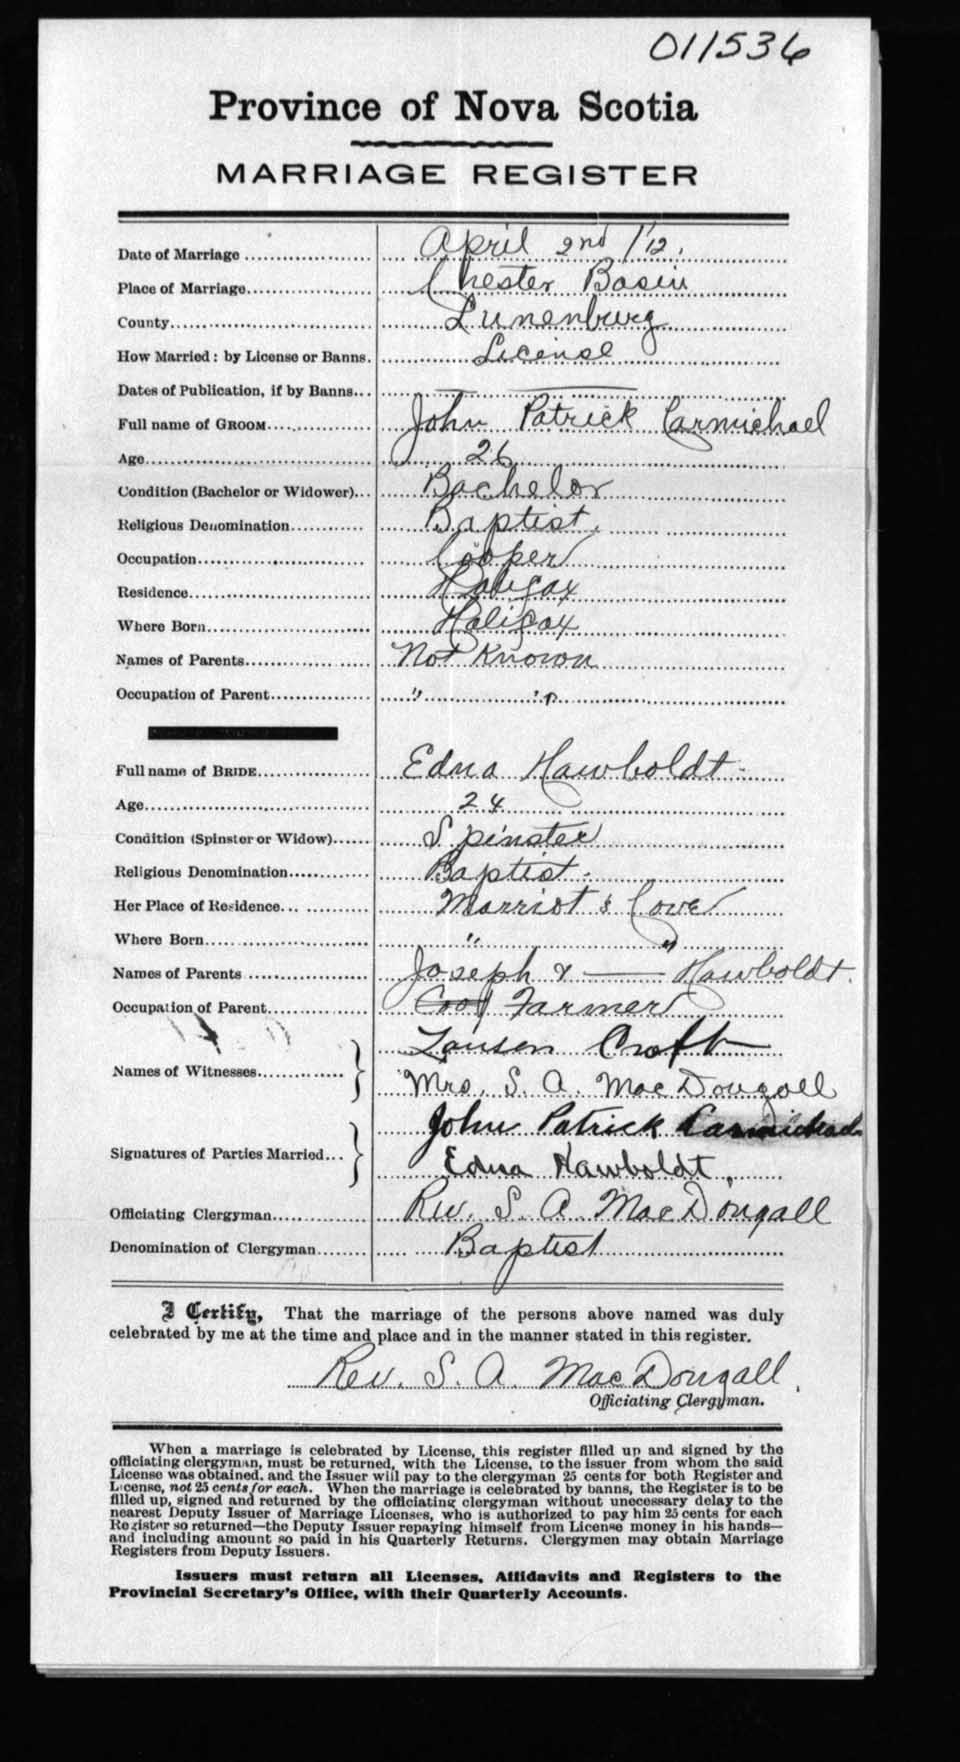 011536
Province of Nova Scotia
MARRIAGE REGISTER
Date of Marriage .................. April 2nd /12.
Place of Marriage.................. Chester Basin
County.................. Lunenburg
How Married: by License or Banns. License
Dates of Publication, if by Banns... — —
Full name of GROOM.................. John Patrick Carmichael
Age.................. 26
Condition (Bachelor or Widower)... Bachelor
Religious Denomination............ Baptist.
Occupation.................. Cooper
Residence.................. Halifax
Where Born.................. Halifax
Names of Parents.................. Not Known
Occupation of Parent............... " "
Full name of BRIDE.................. Edna Hawboldt
Age.................. 24
Condition (Spinster or Widow)...... Spinster
Religious Denomination............ Baptist.
Her Place of Residence... ............ Marriot's Cove
Where Born.................. " "
Names of Parents .................. Joseph & —— Hawboldt.
Occupation of Parent............... Farmer
Names of Witnesses............. } Croft
Mrs. S. A. MacDougall
Signatures of Parties Married... } John Patrick Carmichael
Edna Hawboldt,
Officiating Clergyman............... Rev. S. A. MacDougall
Denomination of Clergyman........ Baptist
I Certify, That the marriage of the persons above named was duly
celebrated by me at the time and place and in the manner stated in this register.
Rev. S. A. MacDougall.
Officiating Clergyman.
When a marriage is celebrated by License, this register filled up and signed by the
officiating clergyman, must be returned, with the License, to the issuer from whom the said
License was obtained, and the Issuer will pay to the clergyman 25 cents for both Register and
License, not 25 cents for each. When the marriage is celebrated by banns, the Register is to be
filled up, signed and returned by the officiating clergyman without unnecessary delay to the
nearest Deputy Issuer of Marriage Licenses, who is authorized to pay him 25 cents for each
Register so returned—the Deputy Issuer repaying himself from License money in his hands—
and including amount so paid in his Quarterly Returns. Clergymen may obtain Marriage
Registers from Deputy Issuers.
Issuers must return all Licenses, Affidavits and Registers to the
Provincial Secretary's Office, with their Quarterly Accounts.